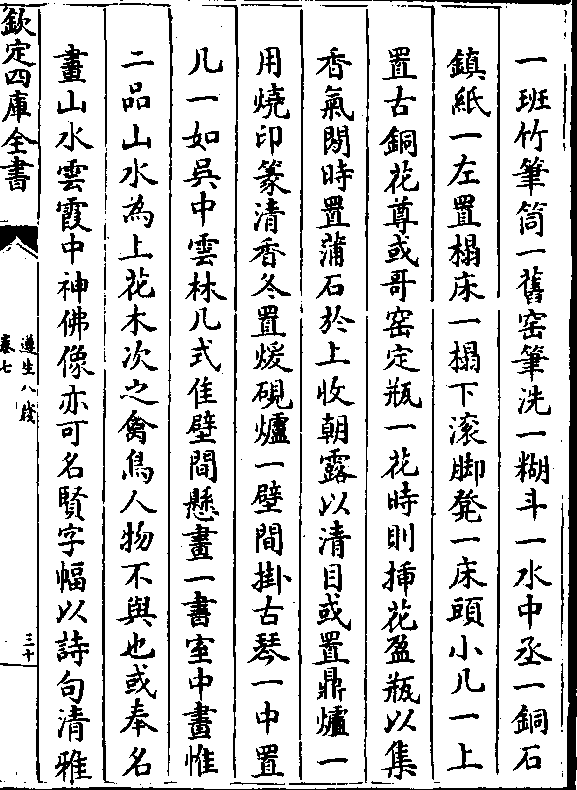 一班竹筆筒一舊窑筆洗一糊斗一水中丞一銅石
鎮紙一左置榻床一榻下滚脚凳一床頭小几一上
置古銅花尊或哥窑定瓶一花時則揷花盈瓶以集
香氣閒時置蒲石於上收朝露以清目或置鼎爐一
用燒印篆清香冬置煖硯爐一壁間掛古琴一中置
几一如吳中雲林几式佳壁間懸畫一書室中畫惟
二品山水為上花木次之禽鳥人物不與也或奉名
畫山水雲霞中神佛像亦可名賢字幅以詩句清雅
欽定四庫全書
遵生八牋
卷七
三十